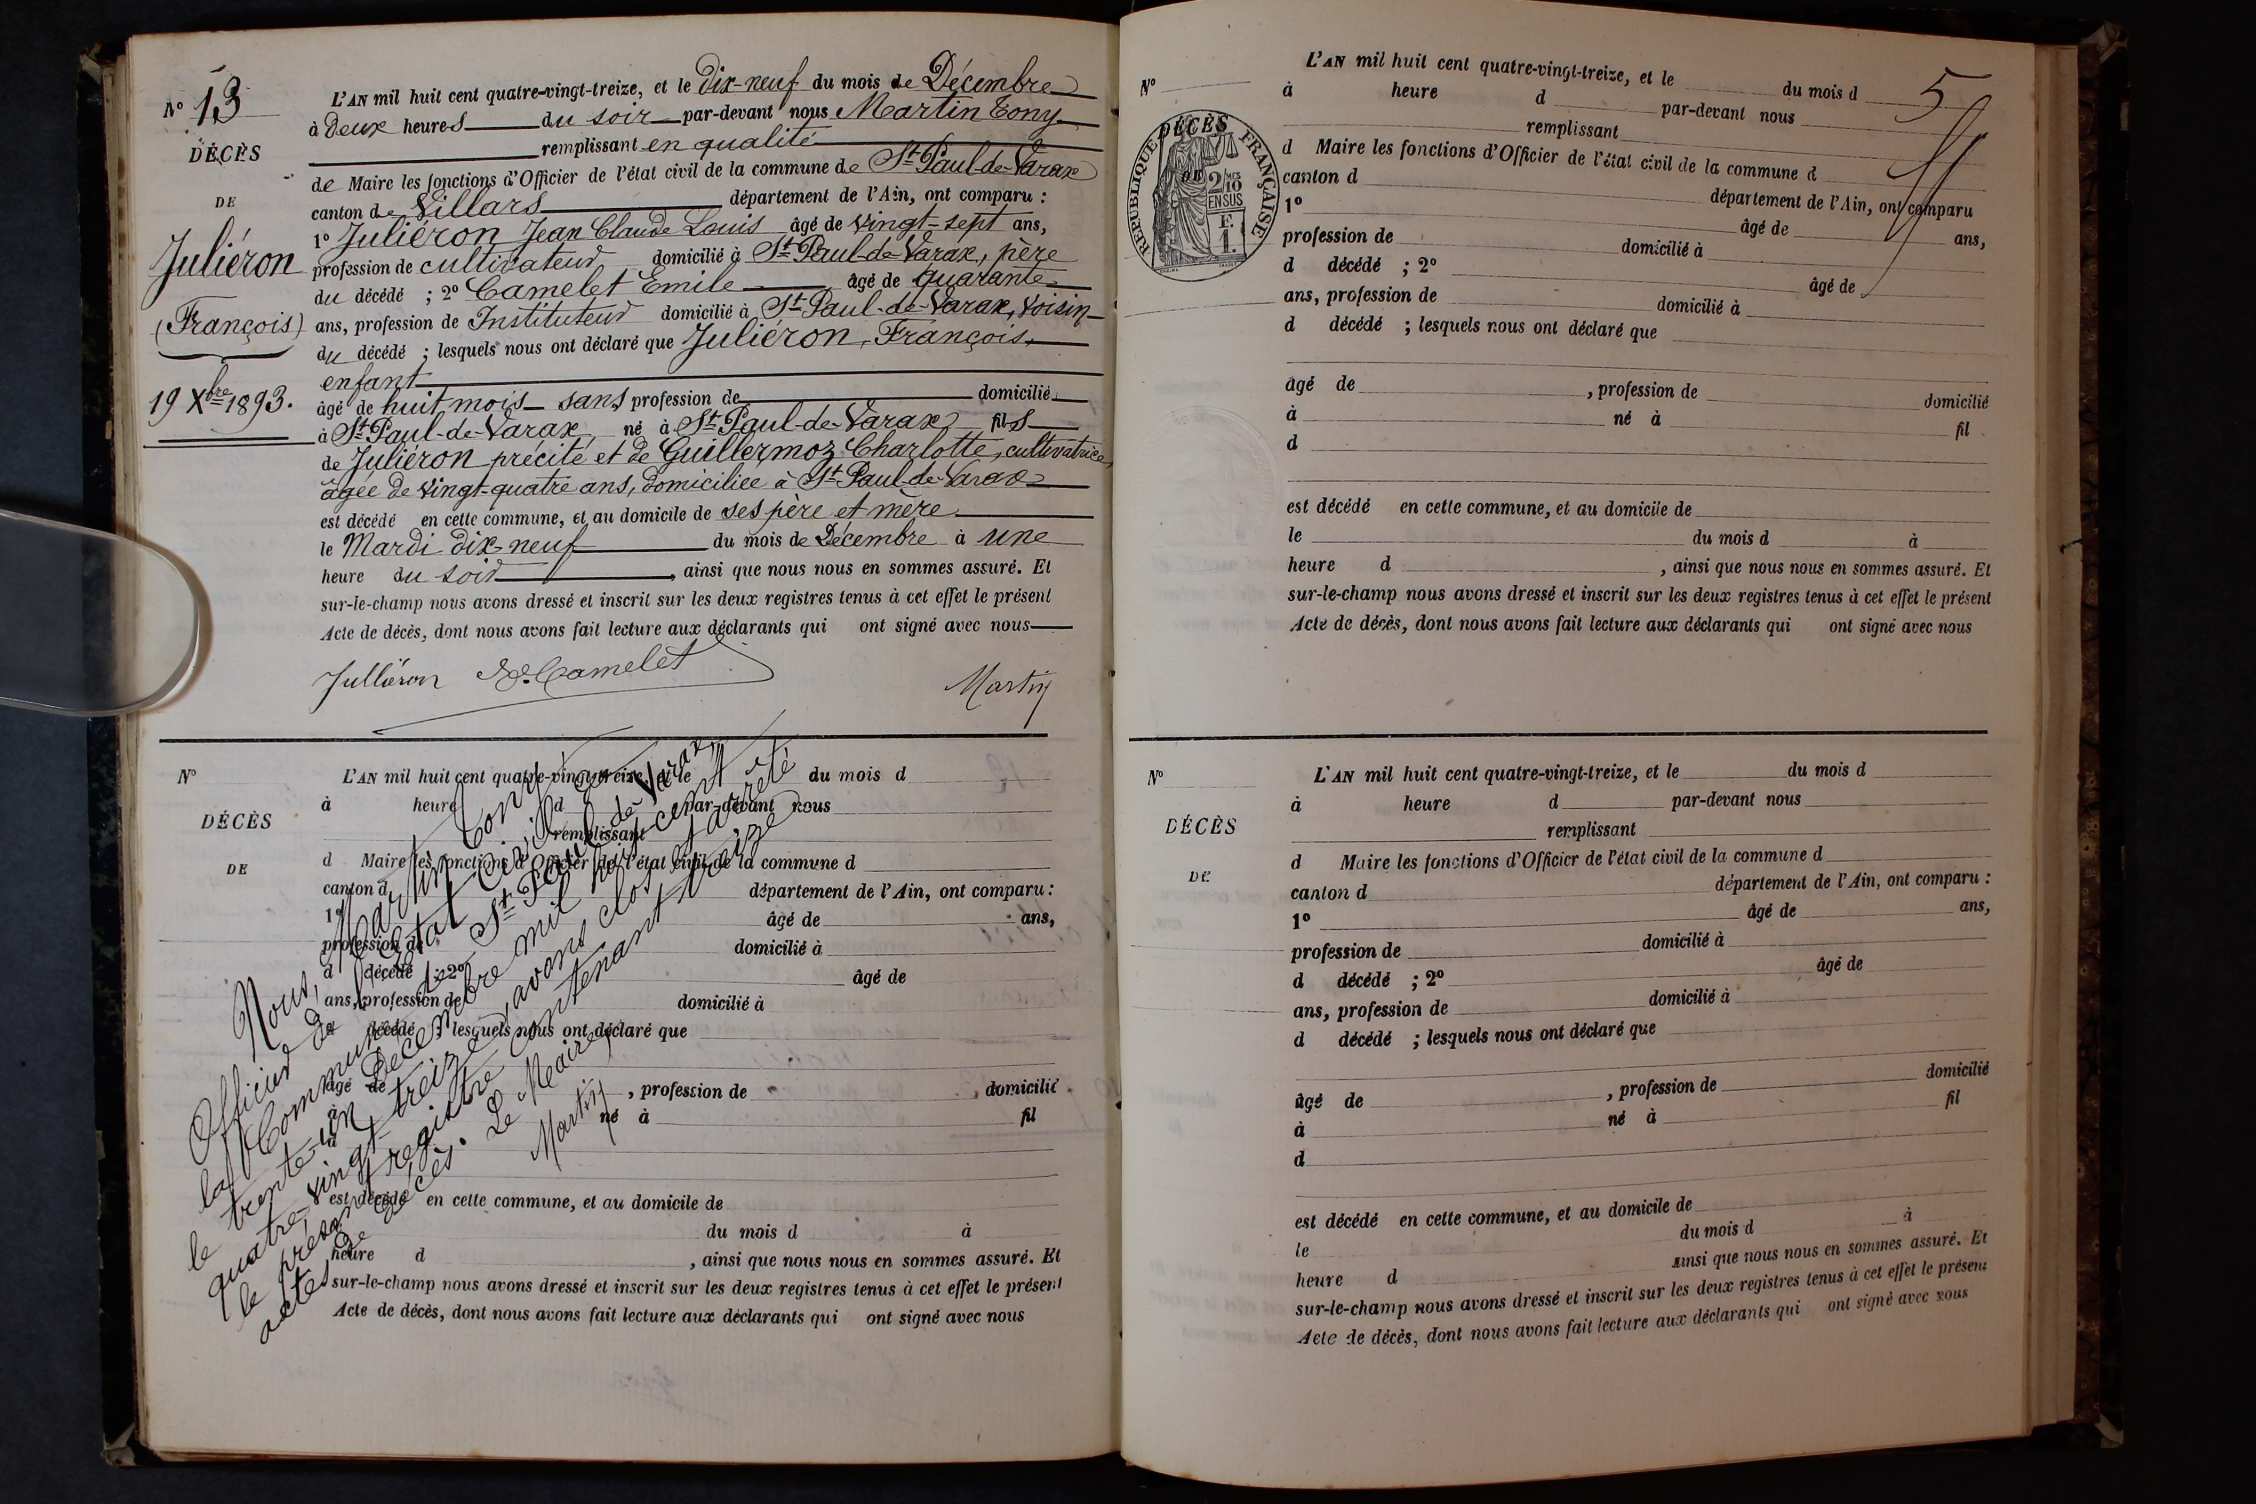 N° 13
DÉCÈS
DE
Juliéron
(François)
19 Xbre 1893.
L'AN mil huit cent quatre-vingt-treize, et le Dix-neuf du mois de Décembre
à Deux heures du soir par-devant nous Martin Tony
remplissant en qualité
de Maire les fonctions d'Officier de l'état civil de la commune de St-Paul-de-Varax
canton de Villars département de l'Ain, ont comparu :
1° Juliéron Jean Claude Louis âgé de vingt-sept ans,
profession de cultivateur domicilié à St-Paul-de-Varax, père
du décédé ; 2° Camelet Emile âgé de quarante
ans, profession de Instituteur domicilié à St-Paul-de-Varax, voisin
du décédé ; lesquels nous ont déclaré que Juliéron, François,
enfant
âgé de huit mois sans profession de domicilié
à St-Paul-de-Varax né à St-Paul-de-Varax fils
de Juliéron précité et de Guillermoz Charlotte, cultivatrice,
âgée de vingt-quatre ans, domiciliée à St-Paul-de-Varax
est décédé en cette commune, et au domicile de ses père et mère
le Mardi dix-neuf du mois de Décembre à une
heure du soir, ainsi que nous nous en sommes assuré. Et
sur-le-champ nous avons dressé et inscrit sur les deux registres tenus à cet effet le présent
Acte de décès, dont nous avons fait lecture aux déclarants qui ont signé avec nous
Julliéron E. Camelet Martin
N°
DÉCÈS
DE
L'AN mil huit cent quatre-vingt-treize, et le du mois d
à heure d par-devant nous
remplissant
d Maire les fonctions d'Officier de l'état civil de la commune d
canton d département de l'Ain, ont comparu :
1° âgé de ans,
profession de domicilié à
d décédé ; 2° âgé de
ans, profession de domicilié à
d décédé ; lesquels nous ont déclaré que
âgé de , profession de , domicilié
à né à fil
d
est décédé en cette commune, et au domicile de
du mois d à
heure d , ainsi que nous nous en sommes assuré. Et
sur-le-champ nous avons dressé et inscrit sur les deux registres tenus à cet effet le présent
Acte de décès, dont nous avons fait lecture aux déclarants qui ont signé avec nous
Nous, Martin Tony
Officier de l'Etat Civil de
la Commune de St-Paul-de-Varax,
le trente-un Décembre mil huit-cent
quatre-vingt-treize, avons clos et arrêté
le présent registre contenant treize
actes de décès. Le Maire,
Martin
5
N°
DÉCÈS
RÉPUBLIQUE FRANÇAISE
2/10
EN SUS
F.
1.
L'AN mil huit cent quatre-vingt-treize, et le du mois d
à heure d par-devant nous
remplissant
d Maire les fonctions d'Officier de l'état civil de la commune d
canton d département de l'Ain, ont comparu
1° âgé de ans,
profession de domicilié à
d décédé ; 2° âgé de
ans, profession de domicilié à
d décédé ; lesquels nous ont déclaré que
âgé de , profession de domicilié
à né à fil
d
est décédé en cette commune, et au domicile de
le du mois d à
heure d , ainsi que nous nous en sommes assuré. Et
sur-le-champ nous avons dressé et inscrit sur les deux registres tenus à cet effet le présent
Acte de décès, dont nous avons fait lecture aux déclarants qui ont signé avec nous
N°
DÉCÈS
DE
L'AN mil huit cent quatre-vingt-treize, et le du mois d
à heure d par-devant nous
remplissant
d Maire les fonctions d'Officier de l'état civil de la commune d
canton d département de l'Ain, ont comparu :
1° âgé de ans,
profession de domicilié à
d décédé ; 2° âgé de
ans, profession de domicilié à
d décédé ; lesquels nous ont déclaré que
âgé de , profession de domicilié
à né à fil
d
est décédé en cette commune, et au domicile de
le du mois d à
heure d ainsi que nous nous en sommes assuré. Et
sur-le-champ nous avons dressé et inscrit sur les deux registres tenus à cet effet le présent
Acte de décès, dont nous avons fait lecture aux déclarants qui ont signé avec nous